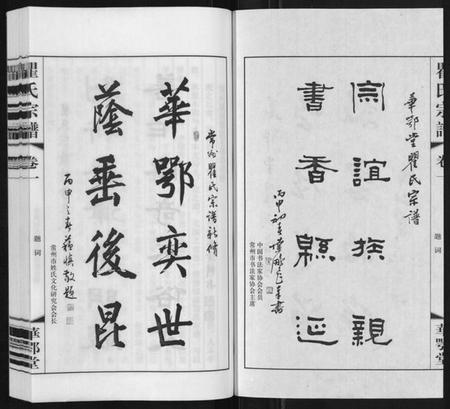 瞿氏宗譜
卷一
題詞
華鄂堂
華鄂堂瞿氏宗譜
宗誼族親
書香緜延
丙申初
中国书法家协会会员
常州市书法家协会主席
常州瞿氏宗谱新修
華鄂奕世
蔭垂後昆
丙申之春
敬題
常州市姓氏文化研究会会长
瞿氏宗譜
卷一
題词
華鄂堂